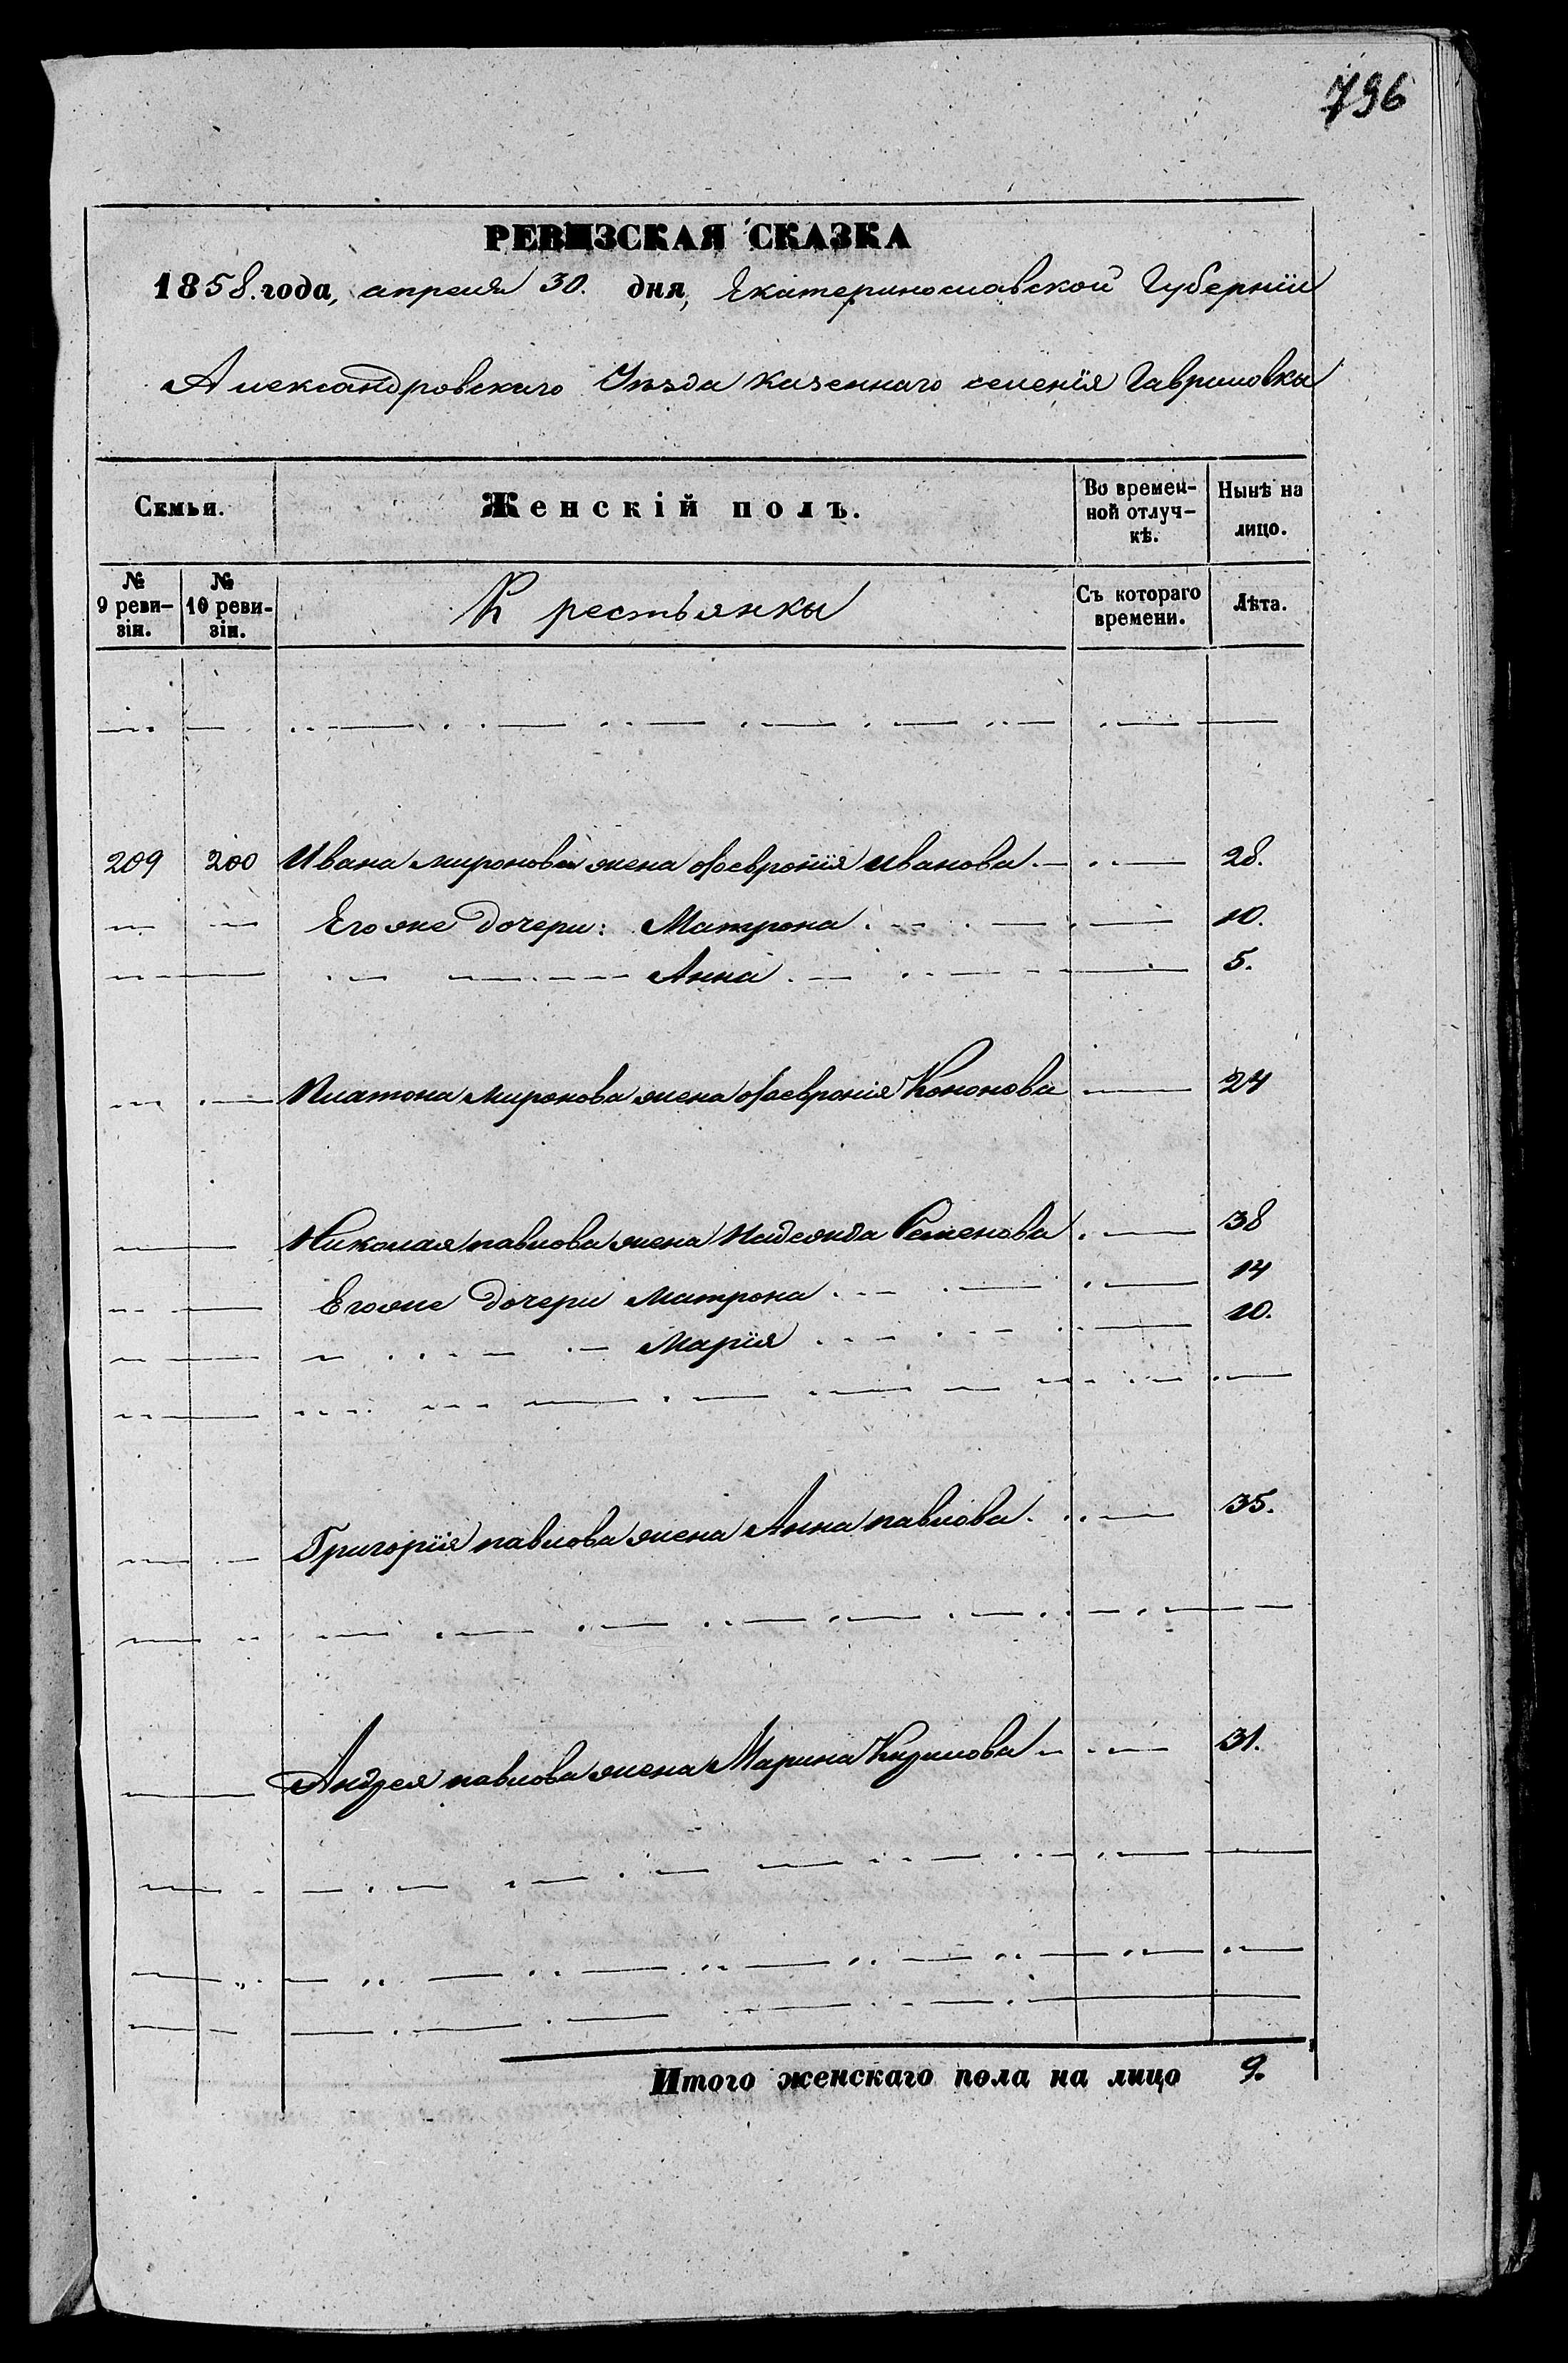 796
РЕВИЗСКАЯ СКАЗКА
1858. года, апреля 30. дня, Екатеринославской Губерніи
Александровскаго Уѣзда казеннаго селенія Гавриловки
Семьи. Женскій полъ. Во времен- Нынѣ на
ной отлуч- лицо.
кѣ.
№ № Крестьянки Съ котораго Лѣта.
9 реви- 10 реви- времени.
зіи. зіи.
209 200 Ивана миронова жена Февронія Иванова 28.
Его же дочери: Матрона 10.
Анна 5.
Платона миронова жена Февронія Кононова 24
Николая павлова жена Надежда Семенова 38
Его же дочери Матрона 14
Марія 10.
Григорія павлова жена Анна павлова 35.
Андрея павлова жена Марина Кирилова 31.
Итого женскаго пола на лицо 9.